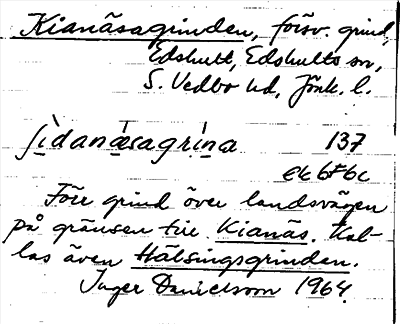 Kianäsagrinden, försv. grind,
Edshult, Edshults sn,
S. Vedbo hd, Jönk. l.
137
Förr grind över landsvägen
på gränsen till Kianäs. Kal-
las även Hälsingsgrinden.
Inger Danielsson 1964.